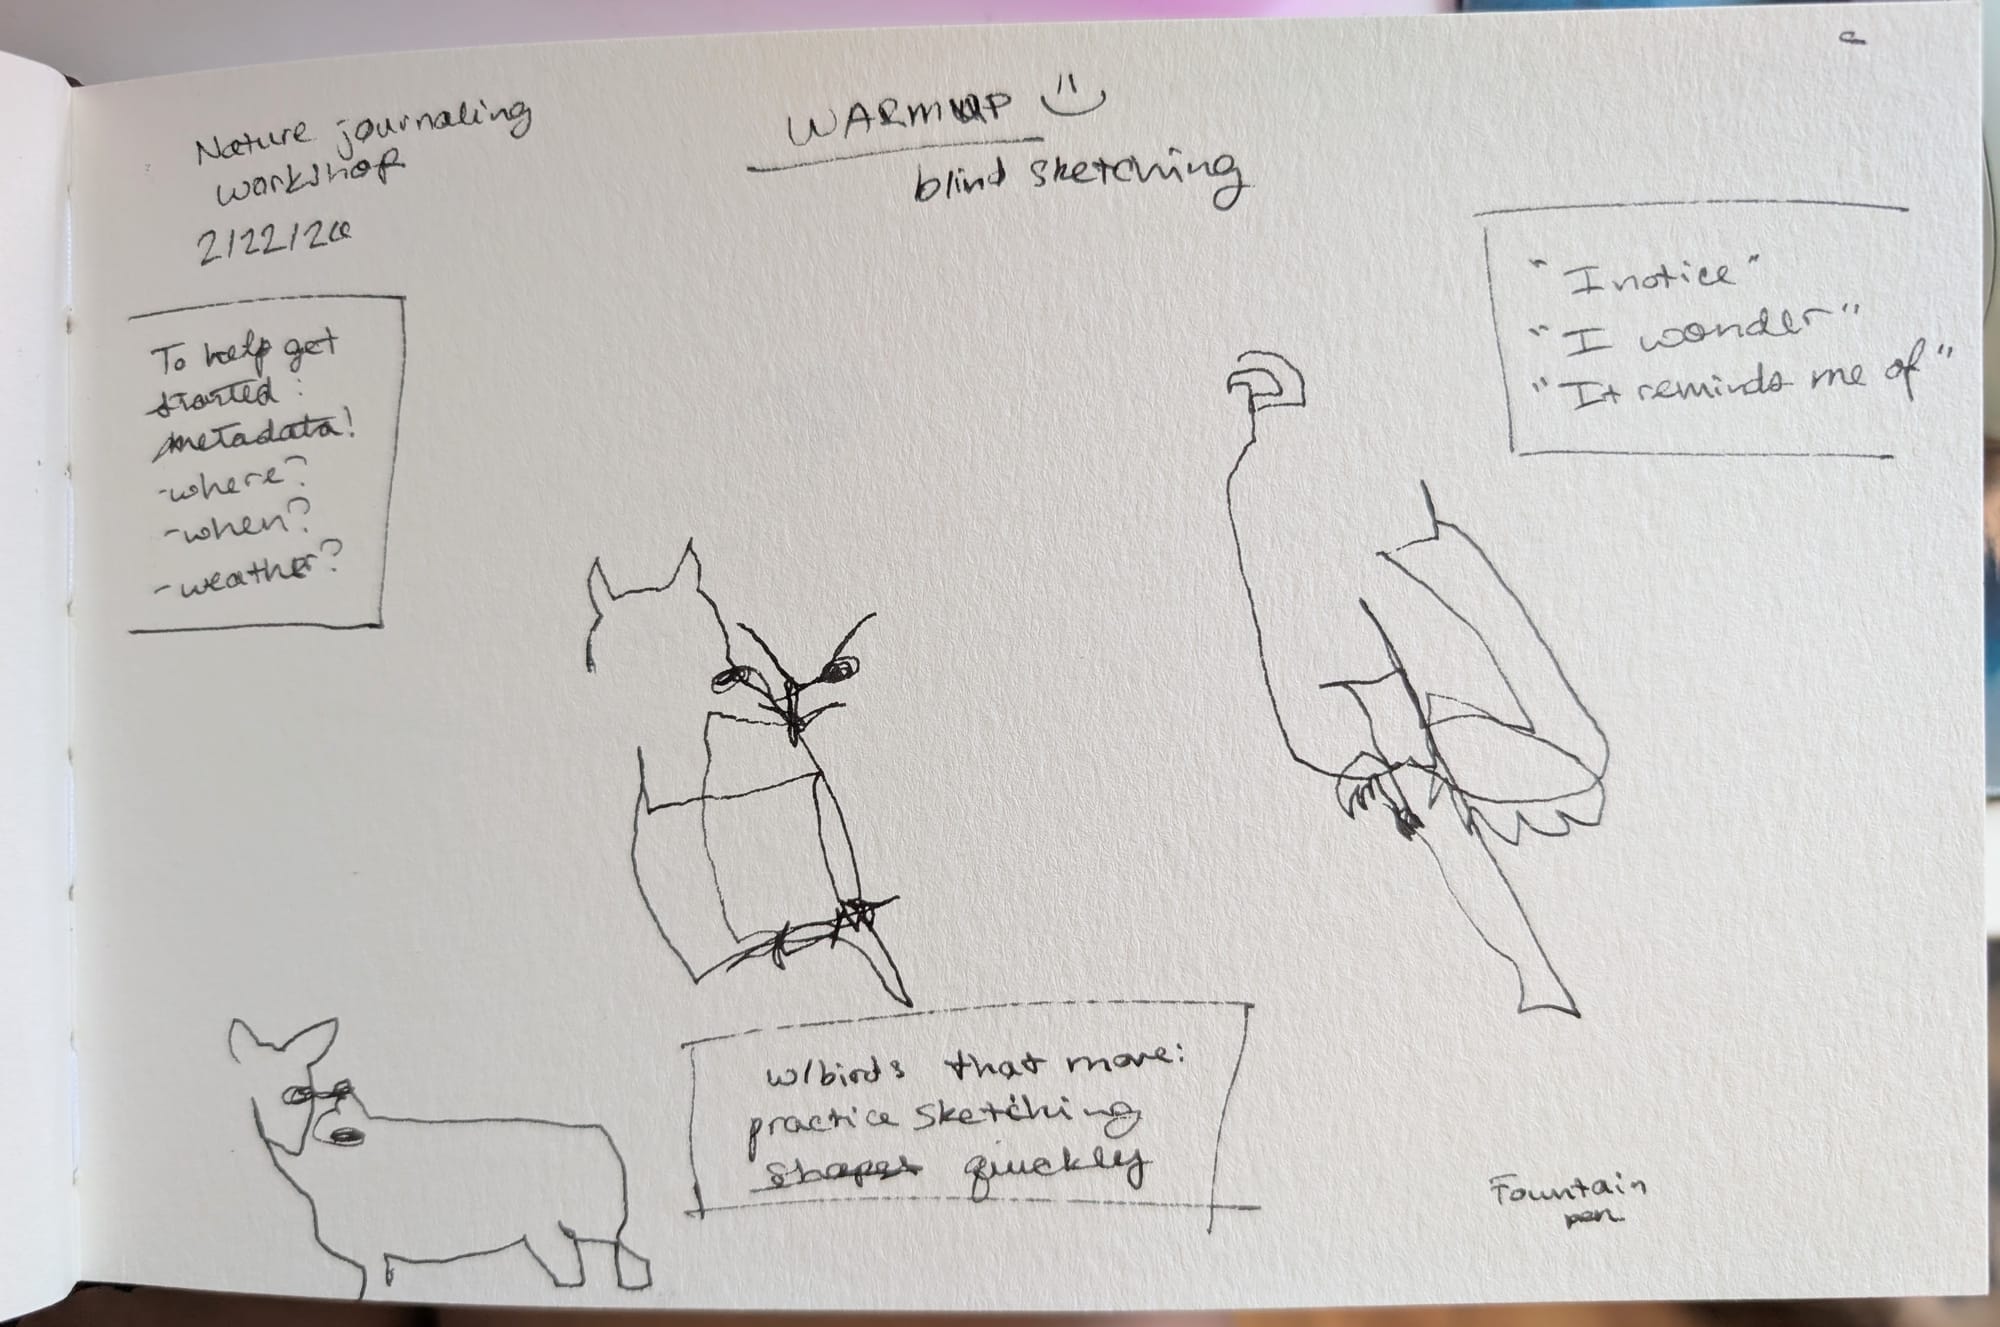 Nature journaling
workshop
2/22/26
WARMUP
blind sketching
"I notice"
"I wonder"
"It reminds me of"
To help get
started:
metadata!
-where?
-when?
-weather?
w/birds that move:
practice sketching
shapes quickly
Fountain
pen